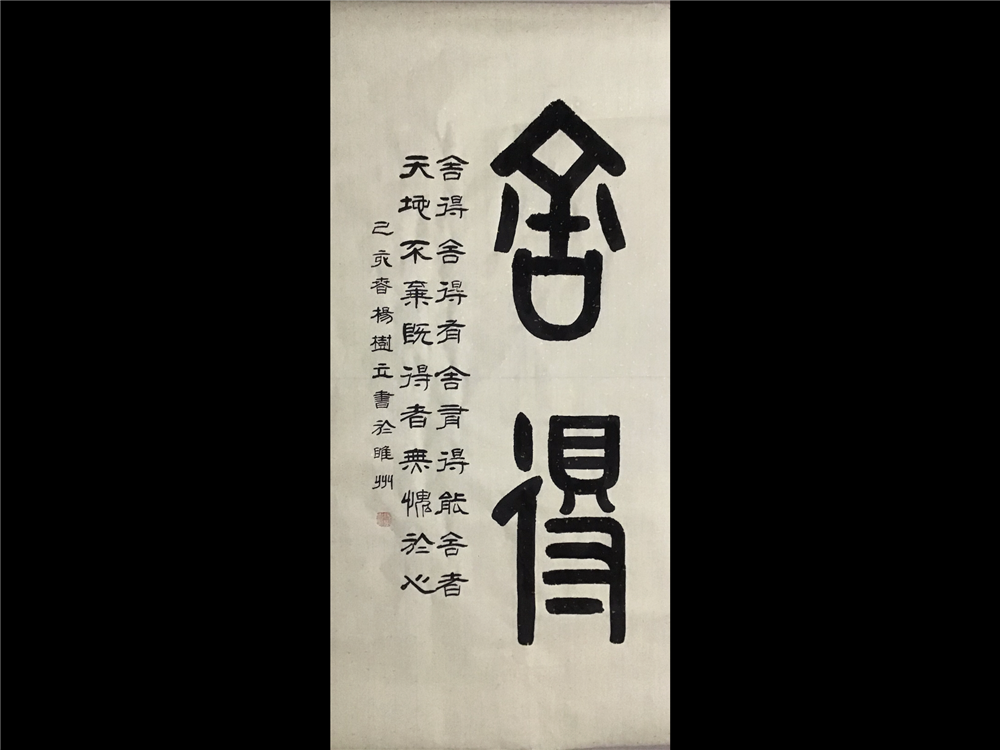 舍得
舍得舍得有舍有得能舍者
天地不棄既得者無愧於心
己亥春楊樹立書於睢州